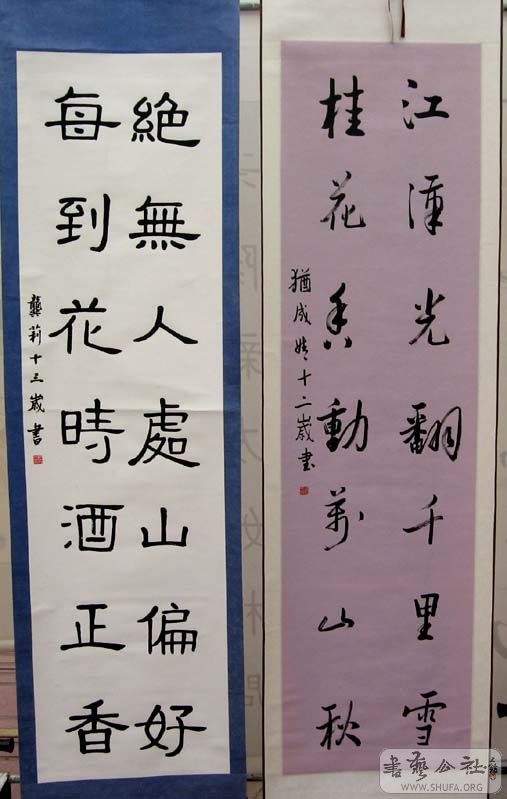 江潭光翻千里雪
桂花香動萬山秋
猶成 十二歲書
絕無人處山偏好
每到花時酒正香
龔莉十三歲書
書藝公社
WWW.SHUFA.ORG